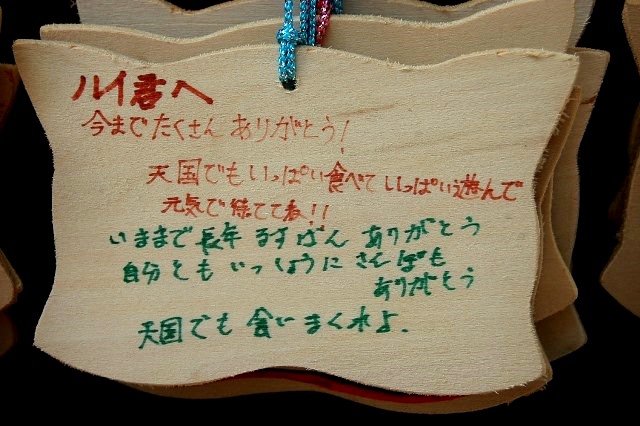 ルイ君へ
今までたくさんありがとう!
天国でもいっぱい食べていっぱい遊んで
元気で待ててね!!
いままで長年るすばんありがとう
自分ともいっしょうにさんぽも
ありがとう
天国でも食いまくれよ.